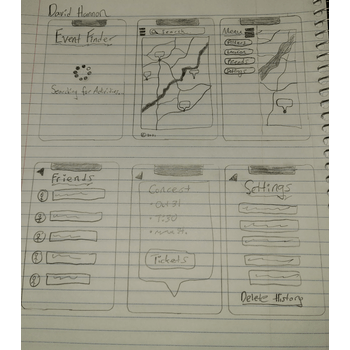 David Hannon
Event Finder
Searching for Activities...
Search
Menu
Friends
Settings
Friends
Concert
• Oct 31
• 7:30
Tickets
Settings
Delete History